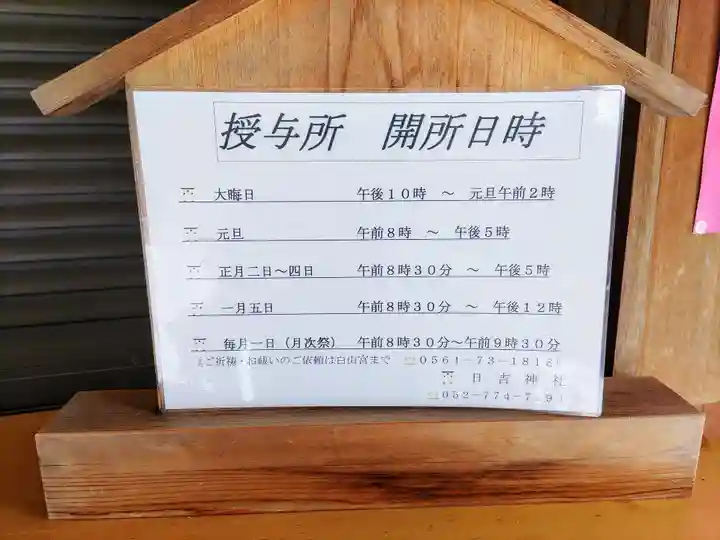 授与所　開所日時
大晦日　午後１０時　～　元旦午前２時
元旦　午前８時　～　午後５時
正月二日～四日　午前８時３０分　～　午後５時
一月五日　午前８時３０分　～　午後１２時
毎月一日（月次祭）　午前８時３０分～午前９時３０分
ご祈祷・お祓いのご依頼は白山宮まで　０５６１－７３－１８１８
日吉神社
０５２－７７４－